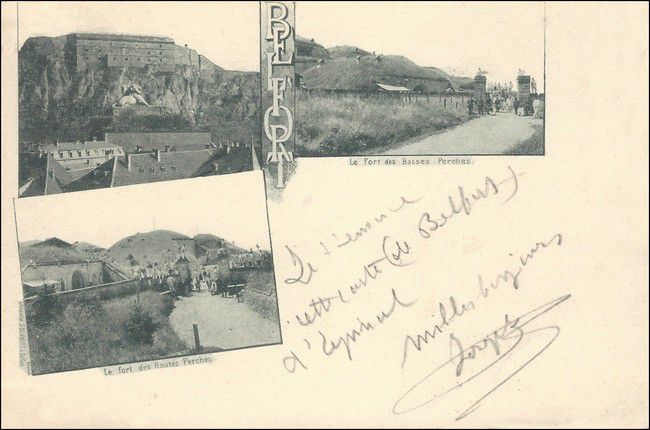 BELFORT
Le fort des Basses Perches
Le fort des Hautes Perches
Je t'envoie
cette carte (de Belfort)
d'Epinal
Mille bonjours
Joseph